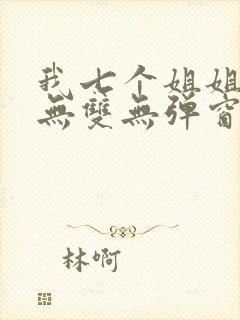 我七个姐姐
無雙無弹窗
林啊